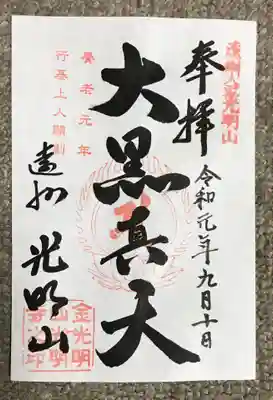 遠州天竜光明山
奉拝
令和元年九月十日
大黒真天
養老元年
行基上人開創
遠州 光明山
金光明
山光明
寺之印